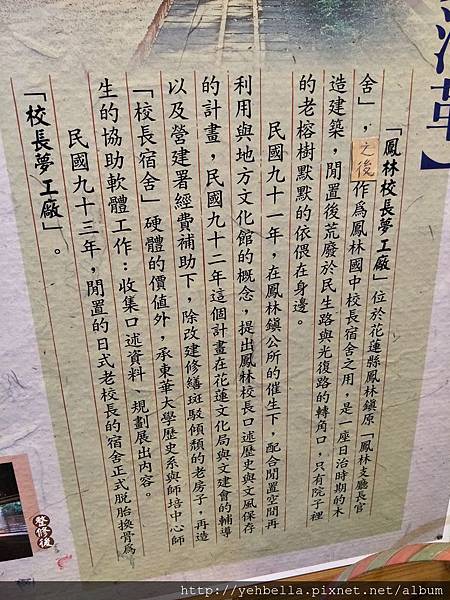 沿革】
「鳳林校長夢工廠」位於花蓮縣鳳林鎮原「鳳林支廳長官
舍」，之後作為鳳林國中校長宿舍之用，是一座日治時期的木
造建築，閒置後荒廢於民生路與光復路的轉角口，只有院子裡
的老榕樹默默的依偎在身邊。
民國九十一年，在鳳林鎮公所的催生下，配合閒置空間再
利用與地方文化館的概念，提出鳳林校長口述歷史與文風保存
的計畫，民國九十二年這個計畫在花蓮文化局與文建會的輔導
以及營建署經費補助下，除改建修繕斑駁傾頹的老房子，再造
「校長宿舍」硬體的價值外，承東華大學歷史系與師培中心師
生的協助軟體工作：收集口述資料、規劃展出內容。
民國九十三年，閒置的日式老校長的宿舍正式脫胎換骨為
「校長夢工廠」。
整修後
http://yehbella.pixnet.net/album